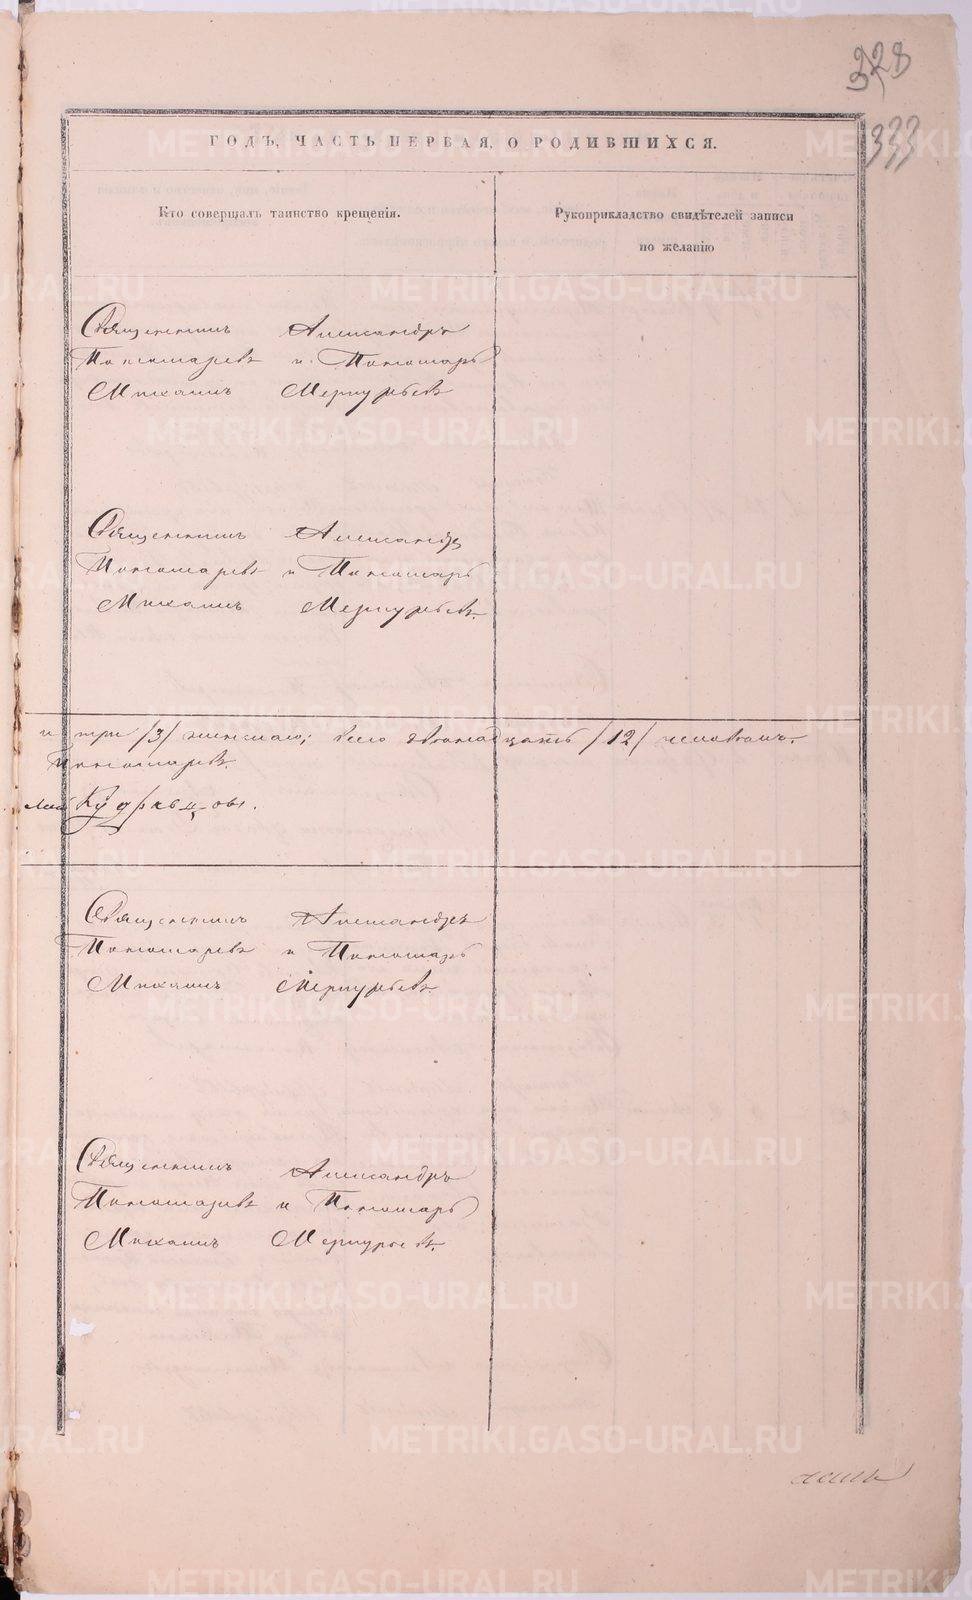 328
333
ГОДЪ, ЧАСТЬ ПЕРВАЯ, О РОДИВШИХСЯ.
Кто совершалъ таинство крещенія.
Рукоприкладство свидѣтелей записи
по желанію
Священникъ Александръ
Пономаревъ и Пономарь
Михаилъ Меркурьевъ
Священникъ Александръ
Пономаревъ и Пономарь
Михаилъ Меркурьевъ.
и три /3/ женскаго; всего двѣнадцать /12/ человѣкъ.
Пономаревъ.
Кудрявцовъ.
Священникъ Александръ
Пономаревъ и Пономарь
Михаилъ Меркурьевъ.
Священникъ Александръ
Пономаревъ и Пономарь
Михаилъ Меркурьевъ.
METRIKI.GASO-URAL.RU